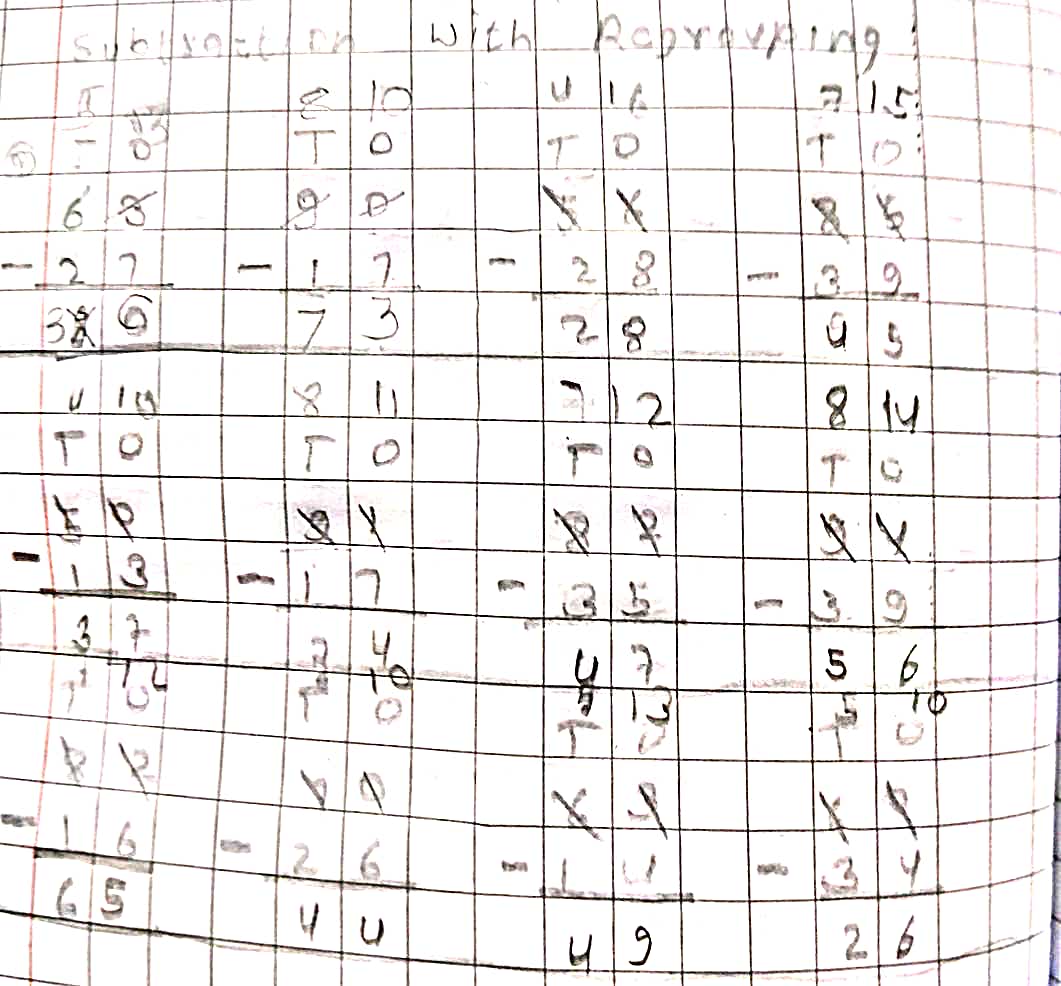 Subtraction with Regrouping
5 13 8 10 4 16 7 15
T O T O T O T O
6 3 9 0 5 6 8 5
- 2 7 - 1 7 - 2 8 - 3 9
3 6 7 3 2 8 4 5
4 10 8 11 7 12 8 14
T O T O T O T O
5 0 9 1 8 2 9 4
- 1 3 - 1 7 - 3 5 - 3 9
3 7 7 4 4 7 5 6
7 12 10 5 13 5 10
T O T O T O T O
- 1 6 - 2 6 - 1 4 - 3 4
6 5 4 4 4 9 2 6